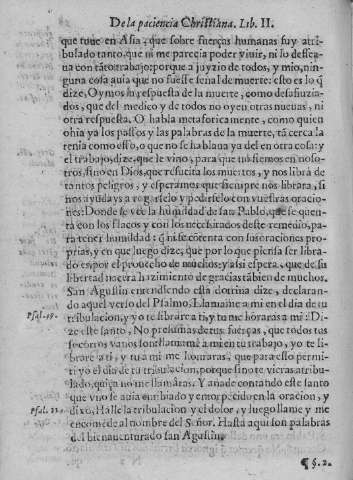 De la paciencia Christiana. Lib. II.
que tuue en Asia, que sobre fuerças humanas fuy atri-
bulado tanto, que ni me parecia poder viuir, ni lo dessea
ua con tãto trabajo: porque a juyzio de todos, y mio, nin-
guna cosa auia que no fuesse señal de muerte: esto es lo q̃
dize, Oymos la respuesta de la muerte, como desafuzia-
dos, que del medico y de todos no oyen otras nueuas, ni
otra respuesta. O, habla metaforicamente, como quien
ohia ya los passos y las palabras de la muerte, tã cerca la
tenia como esso, o que no se hablaua ya del en otra cosa: y
el trabajo, dize, que le vino, para que no fiemos en noso-
tros, sino en Dios, que resucita los muertos, y nos libra de
tantos peligros, y esperamos que siempre nos librara, si
nos ayudays a rogarselo y pedirselo con vuestras oracio-
nes: Donde se vee la humildad de san Pablo, que se quen-
ta con los flacos y con los necessitados deste remedio, pa-
ra tener humildad: q̃ ni se cõtenta con sus oraciones pro-
prias, y en que luego dize, que por lo que piensa ser libra-
do es, por el prouecho de muchos: y assi espera, que de su
libertad nacera hazimiento de gracias tãbien de muchos.
San Agustin entendiendo esta dotrina dize, declaran-
do aquel verso del Psalmo, Llamame a mi en el dia de tu
Psal. 49. tribulacion, y yo te librare a ti, y tu me honraras a mi: Di-
ze este santo, No presumas de tus fuerças, que todos tus
socorros vanos son: llamame a mi en tu trabajo, yo te li-
brare a ti, y tu a mi me honraras, que para esso permi-
ti yo el dia de tu tribulacion, porque sino te vieras atribu-
lado, quiça no me llamâras. Y añade contando este santo
que vno se auia entibiado y entorpecido en la oracion, y
Psal. dixo, Halle la tribulacion y el dolor, y luego llame y me
encomẽde al nombre del Señor. Hasta aqui son palabras
del bienauenturado san Agustin.
¶ §. 2.